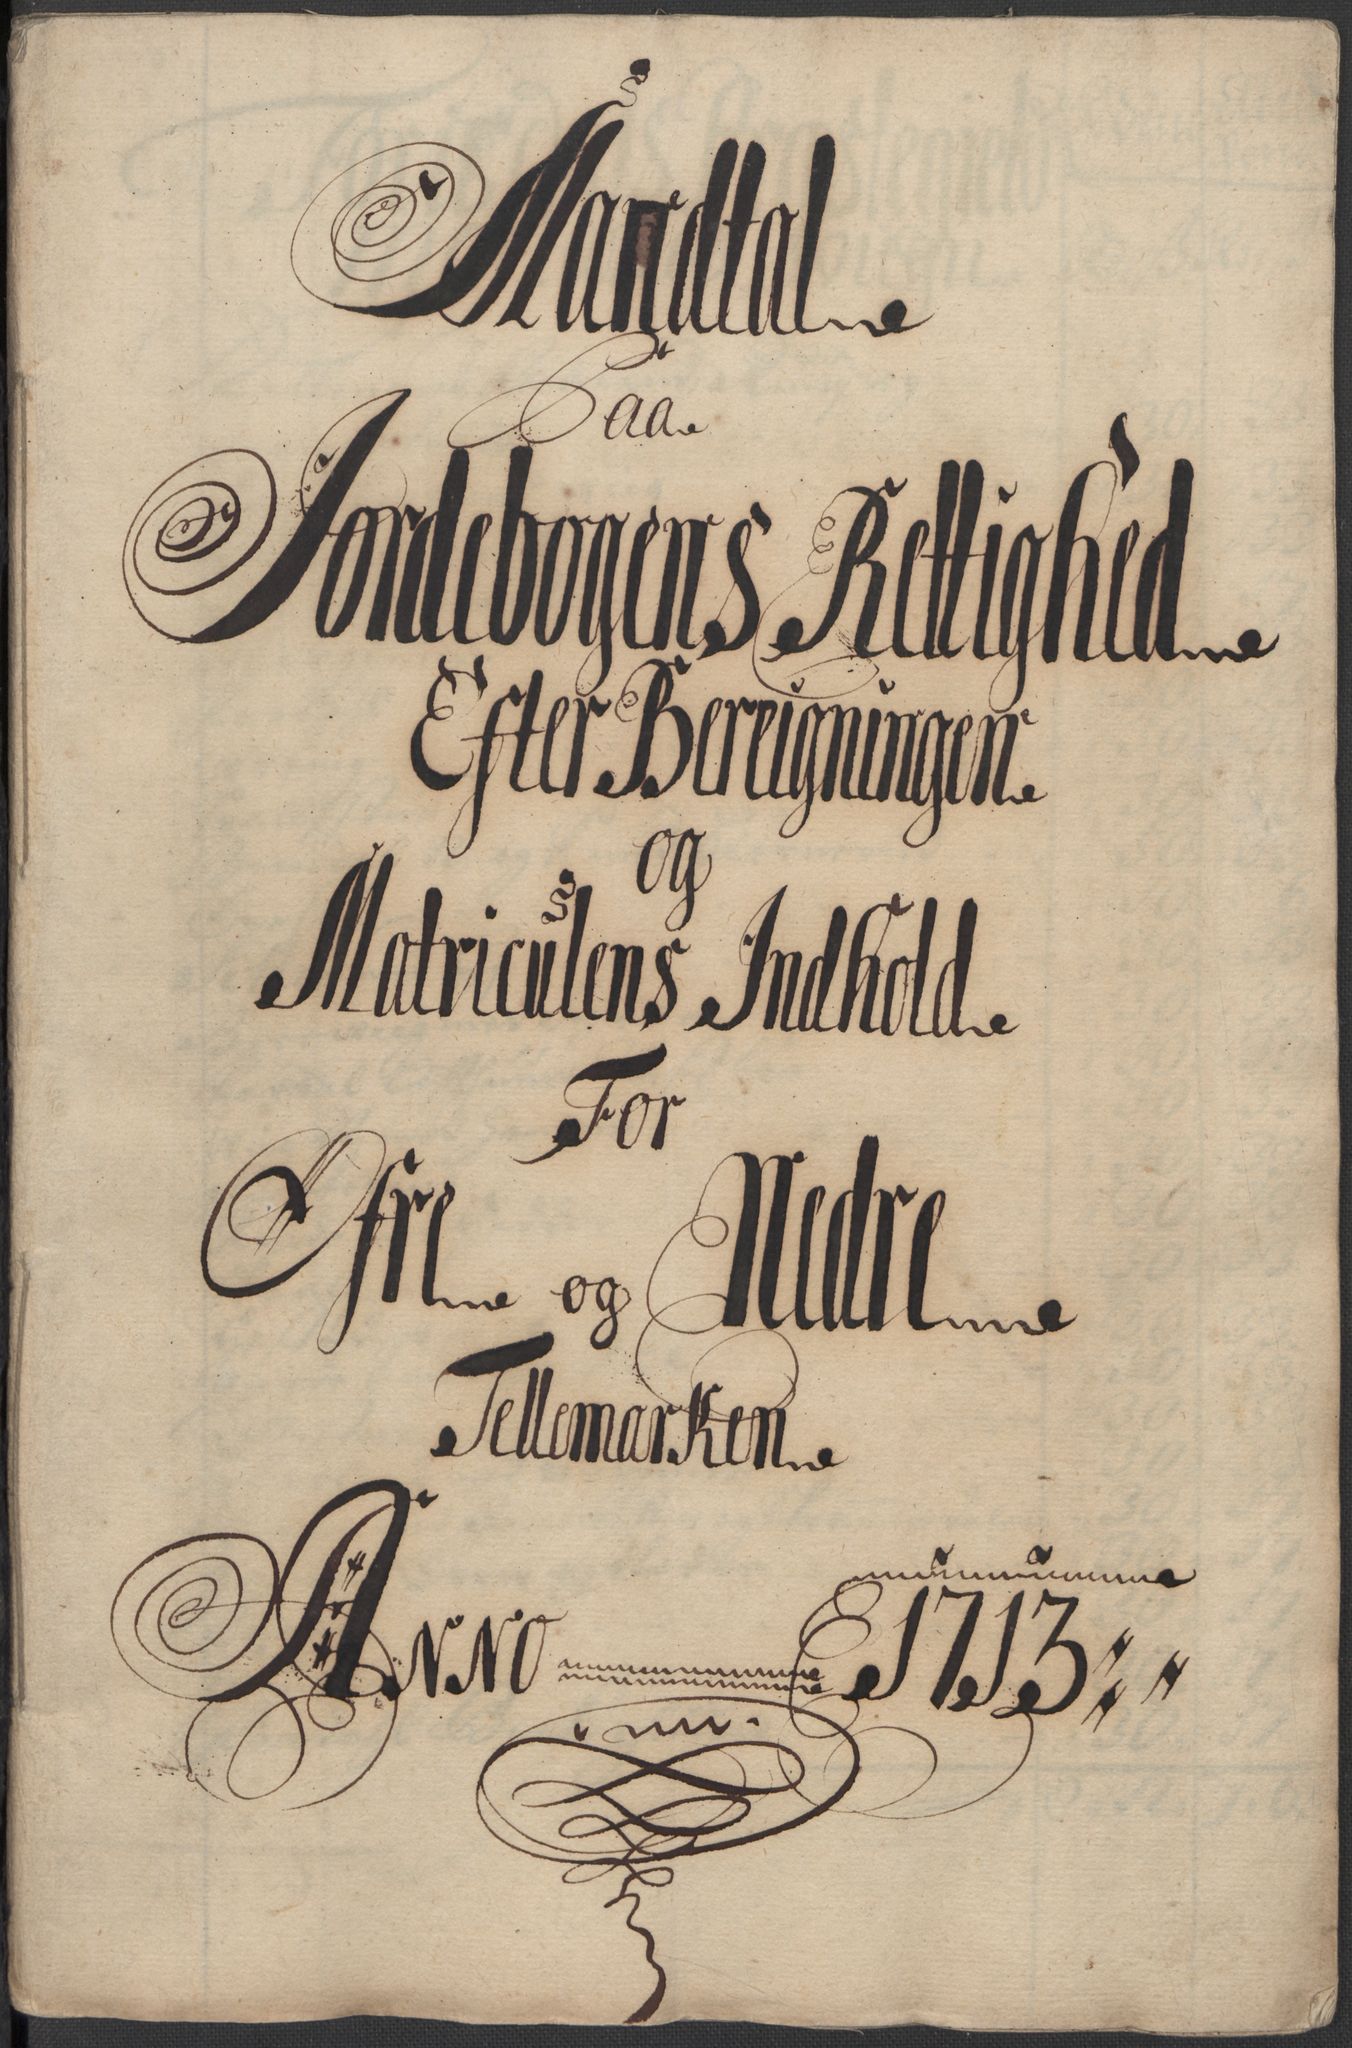 Mandtal
Paa
Jordebogens Rettighed
Efter Bereigningen
og
Matriculens Indhold
For
Øfre og Nedre
Tellemarken
Anno 1713